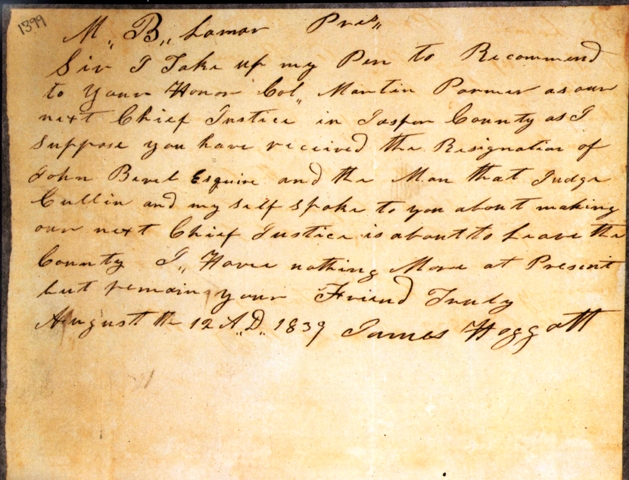 1399
M,, B,, Lamar Pres,,
Sir I Take up my Pen to Recommend
to Your Honor Col,, Martin Parmer as our
next Chief Justice in Jasper County as I
suppose you have received the Resignation of
John Bevel Esquire and the Man that Judge
Cullin and my self spoke to you about making
our next Chief Justice is about to Leave the
County I,, Have nothing More at Present
but remain your Friend Truly
August th 12 A,,D,, 1839 James Hoggatt